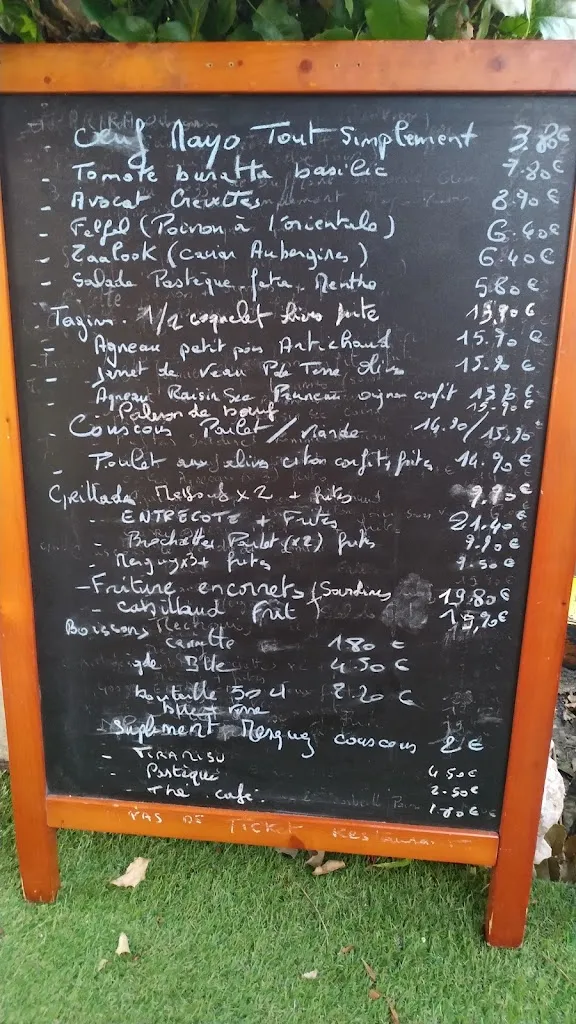 - Oeuf Mayo Tout Simplement 3.80€
- Tomote buratta basilic 7.80€
- Avocat Crevettes 8.90€
- Felfel (Poivron à l'orientale) 6.40€
- Zaalook (caviar Aubergines) 6.40€
- Salade Pastèque feta Menthe 5.80€
Tagine. 1/2 coquelet frite 15,90€
- Agneau petit pois Artichaud 15.90€
- Jarret de Veau Pde Terre Olives 15.90€
- Agneau Raisin Sec Pruneau oignon confit 15.90€
- Paleron de boeuf 15.90€
- Couscous Poulet / Viande 14.90/15.90
- Poulet aux olives citon confit, frites 14.90€
Grillades x2 + frites 9.90€
- ENTRECOTE + Frites 21.40€
- Brochettes Poulet (x2) frites 9.90€
- Merguez x3 + frites 9.50€
- Friture encornets (Sardines 19.80€
- cabillaud Frit 15,90€
Boissons
canette 180 €
gde Btle 4.50 €
boutaille 50 cl 2.20 €
Suplement Merguez couscous 2€
- TIRAMISU 4.50€
- Pastèque 2.50€
- Thé café. 1.80€
PAS DE Ticket Restaurant